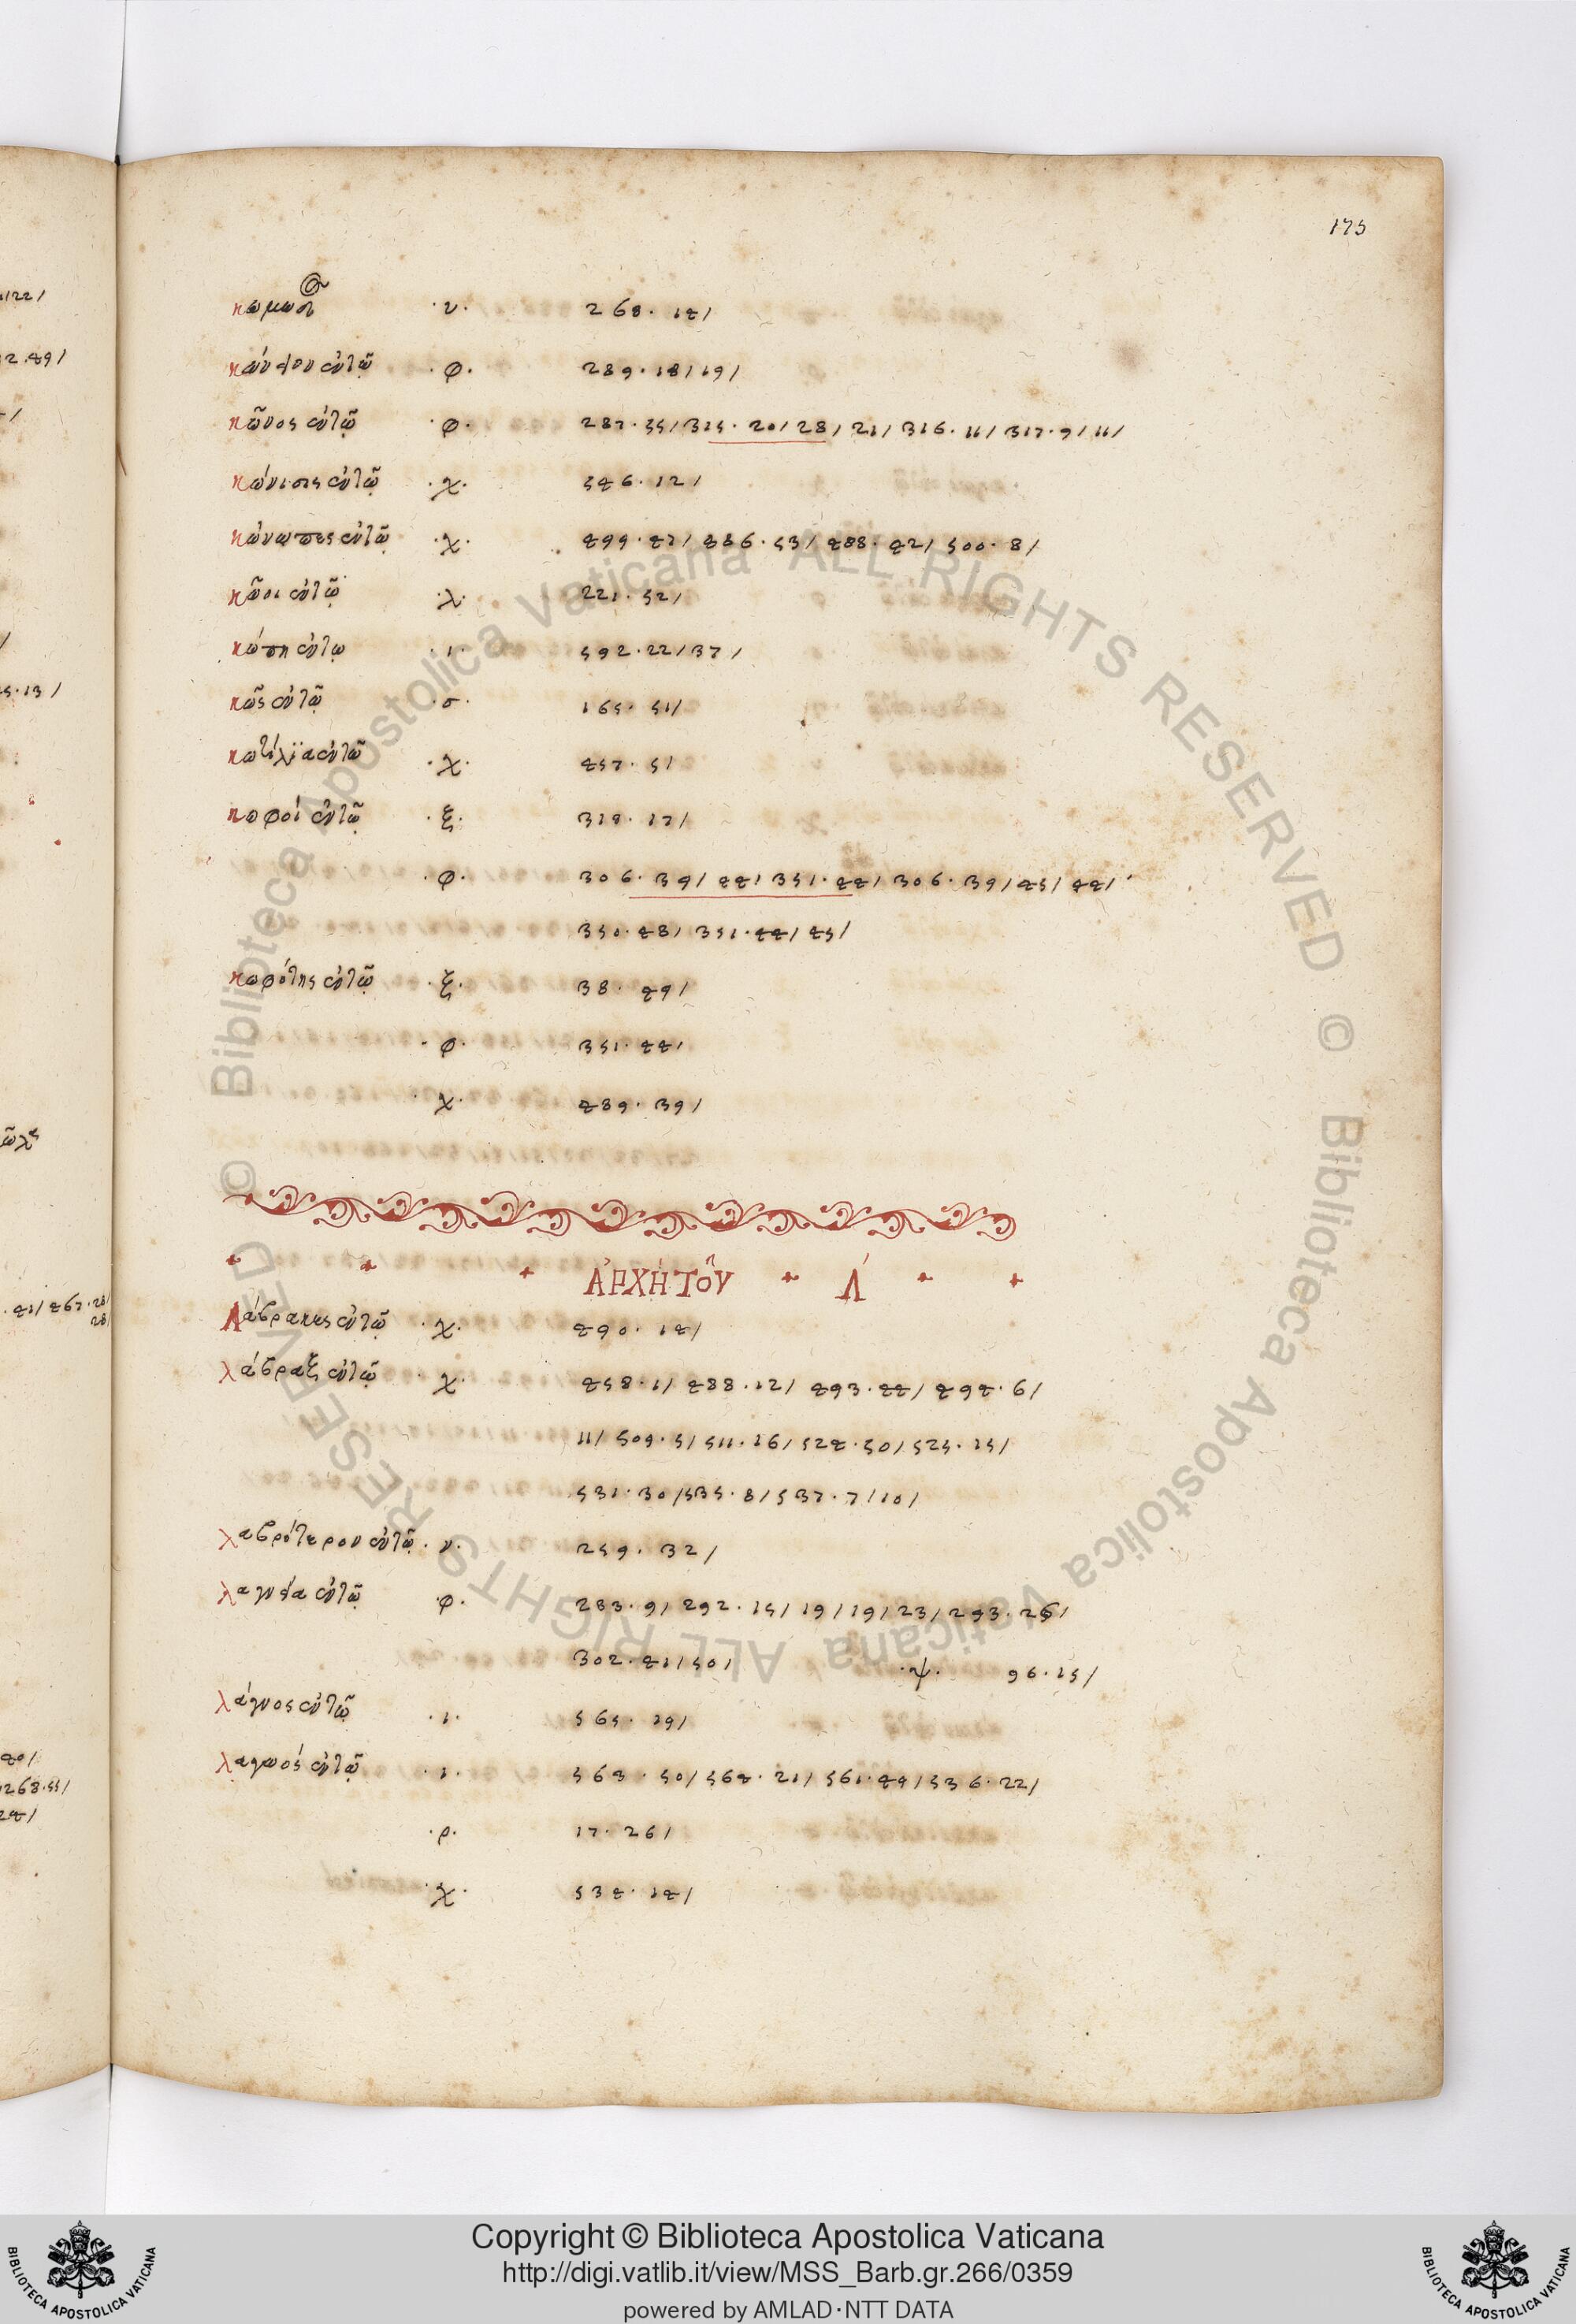 175
κωμωδ · ν · 268 · 14 /
κώνειον ἐν τῷ · φ · 289 · 18 / 19 /
κῶνος ἐν τῷ · φ · 287 · 55 / 315 · 20 / 28 / 21 / 316 · 11 / 317 · 9 / 11 /
κώνισις ἐν τῷ · χ · 546 · 12 /
κώνωπες ἐν τῷ · χ · 499 · 47 / 486 · 53 / 488 · 42 / 500 · 8 /
κῶοι ἐν τῷ · λ · 221 · 52 /
κώπη ἐν τῳ · ι · 592 · 22 / 37 /
κῶς ἐν τῷ · σ · 165 · 51 /
κωτίλϊα ἐν τῶ · χ · 457 · 5 /
κοφοί ἐν τῷ · ξ · 319 · 17 /
· φ · 306 · 39 / 44 / 351 · 44 / 306 · 39 / 45 / 44 /
350 · 48 / 351 · 44 / 45 /
κωφότης ἐν τῷ · ξ · 38 · 49 /
· φ · 351 · 44 /
· χ · 489 · 39 /
ἈΡΧῊ ΤΟῦ Λ
Λάβρακες ἐν τῷ · χ · 490 · 14 /
λάβραξ ἐν τῷ · χ · 458 · 1 / 488 · 12 / 493 · 44 / 494 · 6 /
11 / 509 · 5 / 511 · 16 / 524 · 50 / 525 · 15 /
531 · 30 / 535 · 8 / 537 · 7 / 10 /
λαβρότερον ἐν τῷ · ν · 259 · 32 /
λαγνεία ἐν τῷ · φ · 283 · 9 / 292 · 15 / 19 / 19 / 23 / 293 · 25 /
302 · 41 / 50 / · ψ · 96 · 15 /
λάγνος ἐν τῷ · ι · 565 · 19 /
λαγωός ἐν τῷ · ι · 563 · 50 / 564 · 21 / 561 · 49 / 536 · 22 /
· ρ · 17 · 26 /
· χ · 534 · 14 /
Copyright © Biblioteca Apostolica Vaticana
http://digi.vatlib.it/view/MSS_Barb.gr.266/0359
powered by AMLAD·NTT DATA
BIBLIOTECA APOSTOLICA VATICANA
BIBLIOTECA APOSTOLICA VATICANA
© Biblioteca Apostolica Vaticana ALL RIGHTS RESERVED
© Biblioteca Apostolica Vaticana ALL RIGHTS RESERVED